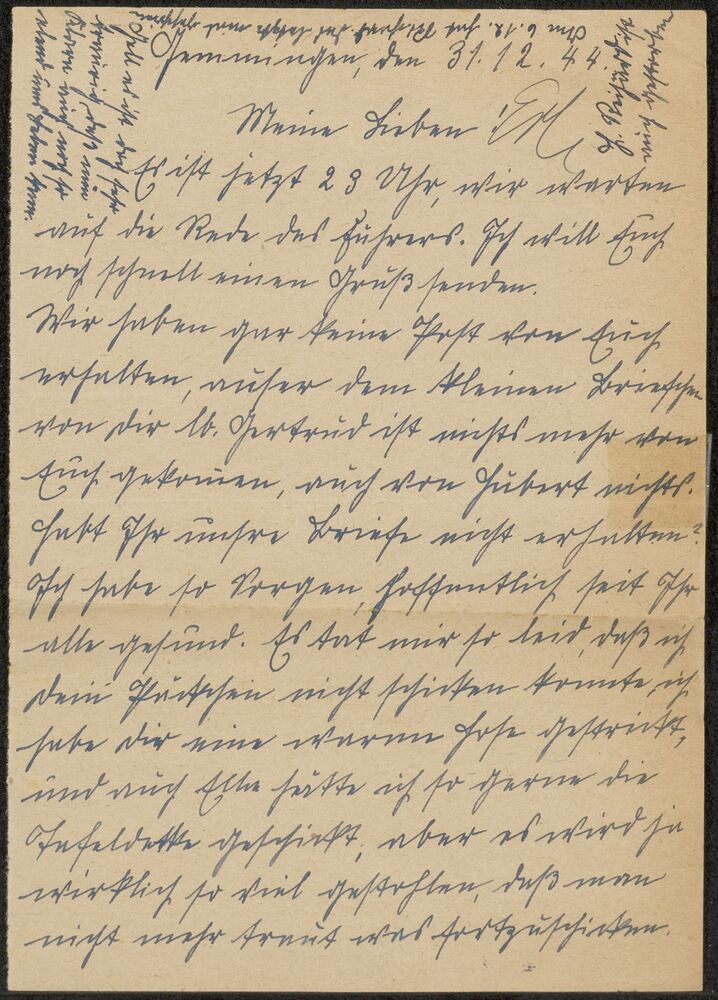 Gemmingen, den 31.12.44.
Meine Lieben!
Es ist jetzt 23 Uhr, wir warten
auf die Rede des Führers. Ich will Euch
noch schnell einen Gruß senden.
Wir haben gar keine Post von Euch
erhalten, außer dem kleinen Briefchen
von Dir lb. Gertrud ist nichts mehr von
Euch gekommen, auch von Hubert nichts.
Habt Ihr unsre Briefe nicht erhalten?
Ich habe so Sorgen, hoffentlich seit Ihr
alle gesund. Es tat mir so leid, daß ich
Dein Päckchen nicht schicken konnte, ich
habe Dir eine warme Hose gestrickt,
und auch Ella hätte ich so gerne die
Tafeldecke geschickt, aber es wird ja
wirklich so viel gestohlen, daß man
nicht mehr traut was fortzuschicken.
Am 6.12. hat Richard das letzte mal geschrieben
Gell es ist doch sehr
traurig, daß man
noch so